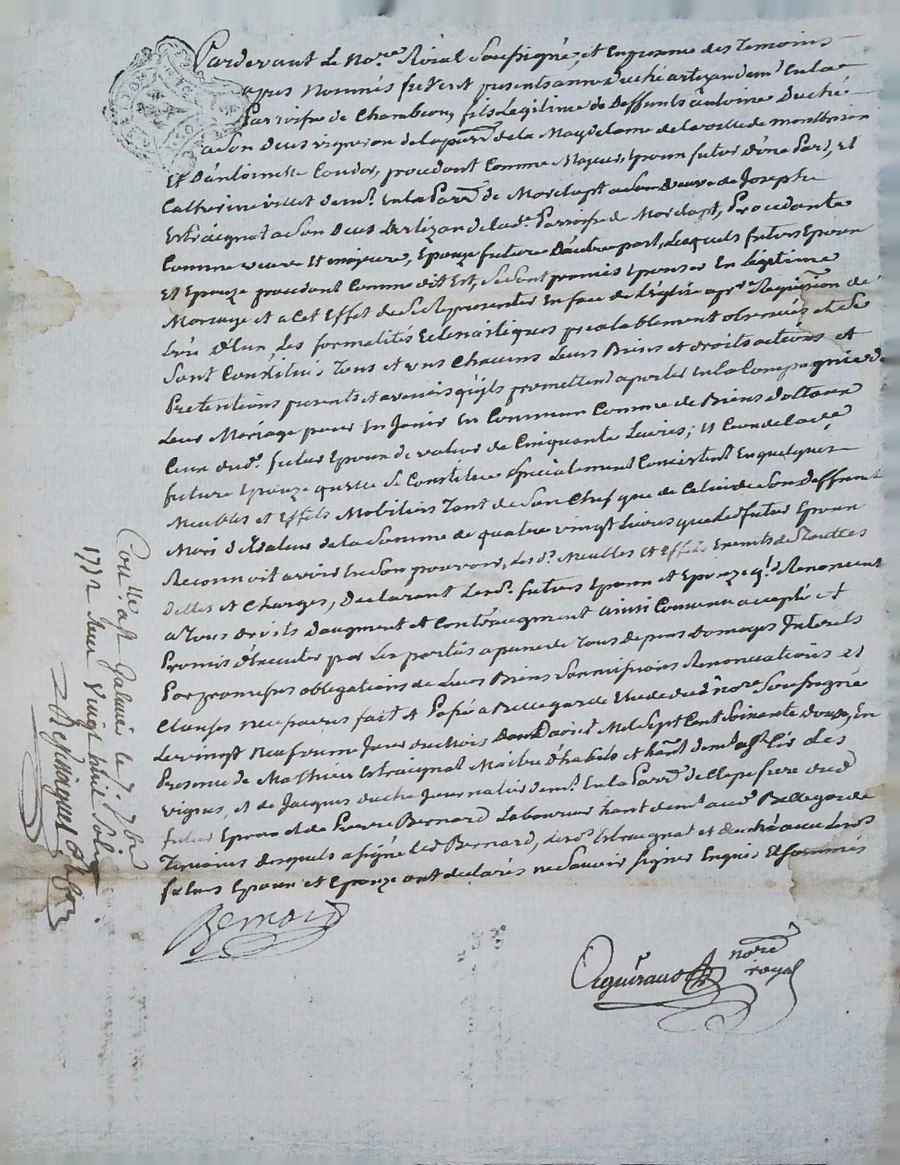 Pardevant Le no.re Roial Soussigné, et En presence des Temoins
apres Nommés furent presents anne Duché artizan dem.t En la
Parroisse de Chambeon, fils Legitime de Deffunts antoine Duché
a Son vivant vigneron de la par.se de la Magdelaine de la ville de montbrison
Et D'antoinette Couder, procedant Comme Majeur Epoux futur d'une Part, Et
Catherine villet dem.t En la Parr.e de Mordapt veuve de Joseph
Estraignat a Son vivant artizan de lad.e Parroisse de Mordapt, Procedante
Comme veuve Et majeure, Epouze future D'autre part, Lesquels futurs Epoux
Et Epouze procedant Comme dit Est, Se Sont promis Epouser En Legitime
Mariage et a Cet Effet de Se Representer En face de L'église a p.re Requisition de
L'un D'Eux, Les formalités Eclesiastiques prealablement observées, et Se
Sont Constitués Tous et uns Chacuns Leurs Biens et droits actions et
Pretentions presents et avenir qu'ils promettent aporter En la Compagnie de
Leur Mariage pour En Jouir En Commun Comme de Biens dotaux
Ceux dud. futur Epoux de valeur de Cinquante Livres; Et Ceux de lad.e
future Epouze qu'elle Se Constitue Specialement Consistent En quelques
Meubles et Effets Mobiliers Tant de Son Chef que de Celui de Son deffunt
Mari de valeur de la Somme de quatre vingt Livres que led. futur Epoux
Reconnoit avoir En Son pouvoir, Les d. Meubles et Effets Exempts de Touttes
dettes et Charges, Declarant Lesd. futurs Epoux et Epouze q.'ils Renoncent
a Tous droits d'augment et Contreaugment ainsi Convenu accepté et
Promis d'Executer par Les parties a peine de Tous depens Domages Interets
Par promesses obligations de Leurs Biens Soumissions Renonciations et
Clauses necessaires fait et Passé a Bellegarde Etude dud. no.re Soussigné
Le vingt neuf.ieme Jour du Mois D'avril Mil Sept Cent Soixante douze, En
Presence de Mathieu Estraignat Maitre d'habits et hab.t dem.t a
vignes, et de Jacques duché Journalier dem.t En la Parr.e de
futur Epoux et de Pierre Bernard Laboureur hab.t dem.t aud. Bellegarde
Temoins desquels a Signé led. Bernard, Lesd. Estraignat et duché avec Lesd.
futurs Epoux et Epouze ont declarés ne Savoir Signer Enquis Et Sommés
Bernard
no.re
royal
Con.lle a St Galmier le 7 7bre
1772 Reçu Vingt huit Sols